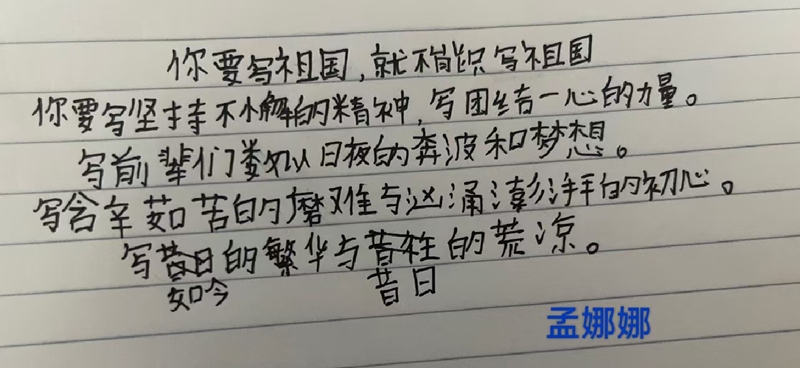 你要写祖国,就不能只写祖国
你要写坚持不懈的精神,写团结一心的力量。
写前辈们数以日夜的奔波和梦想。
写含辛茹苦的磨难与汹涌澎湃的初心。
写昔日的繁华与昔往的荒凉。
如今 昔日
孟娜娜